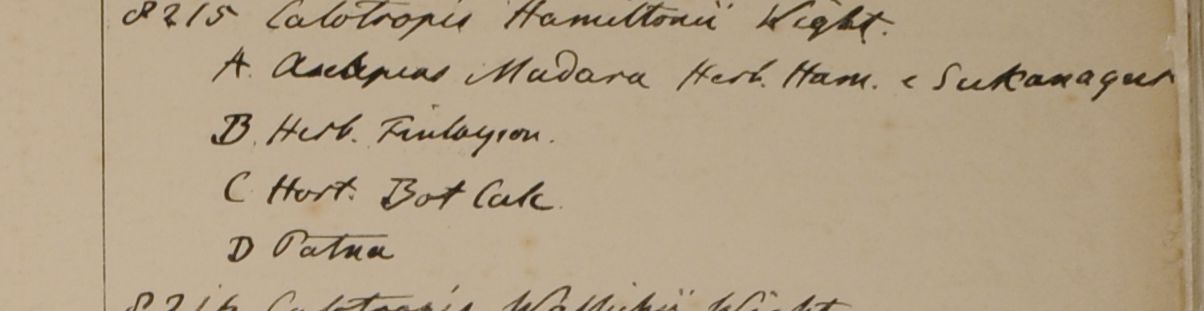 8215 Calotropis Hamiltonii Wight.
A. Asclepias Madara Herb. Ham. e Sukanagur
B. Herb. Finlayson.
C Hort. Bot Calc.
D Patna
8216 Calotropis Wallichii Wight